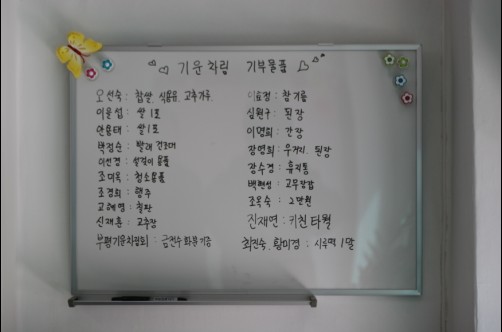 기운차림 기부물품
오선숙 : 찹쌀, 식용유, 고추가루,
이윤섭 : 쌀 1포
안용태 : 쌀 1포
백점순 : 빨래 건조대
이선경 : 설겆이 용품
조미옥 : 청소용품
조경희 : 행주
고혜영 : 칠판
신재훈 : 고추장
부평기운차림회 : 금전수 화분 기증
이효정 : 참기름
심원구 : 된장
이영희 : 간장
장영희 : 우거지, 된장
장수경 : 휴지통
백현성 : 고무장갑
조옥숙 : 2만원
진재면 : 키친타월
최진숙, 황미경 : 시루떡 1말